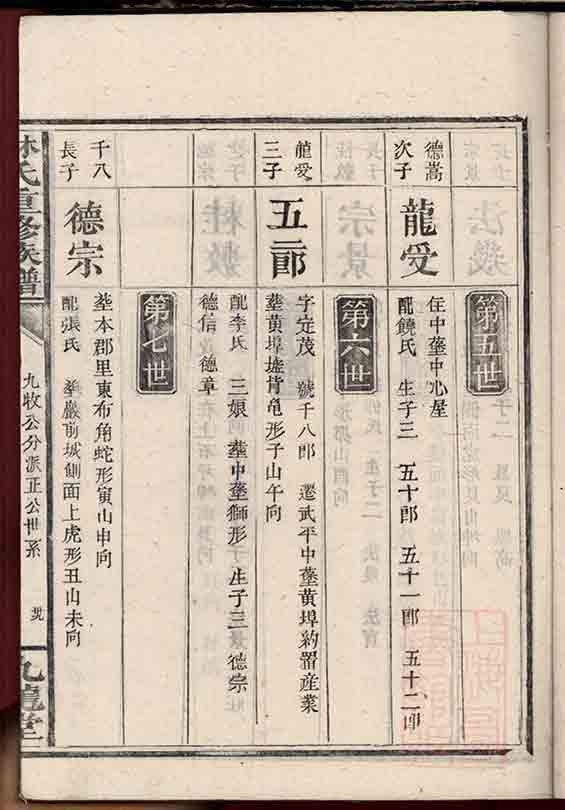 第五世
德嵩
次子
龍受
住中堡中心屋
配饒氏 生子三 五十郎 五十一郎 五十二郎
第六世
龍受
三子
五二郎
字定茂 號千八郎 遷武平中堡黃埠約置産業
塟黃埠墟背龟形子山午向
配李氏 三娘 塟中堡獅形 生子三 德宗
德信 德章
第七世
千八
長子
德宗
塟本郡里東布角蛇形寅山申向
配張氏 塟嚴前城側面上虎形丑山未向
林氏重修族譜
九牧公分派正公世系
九龍堂